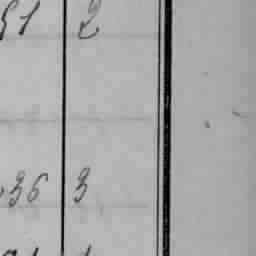 51 2
36 3